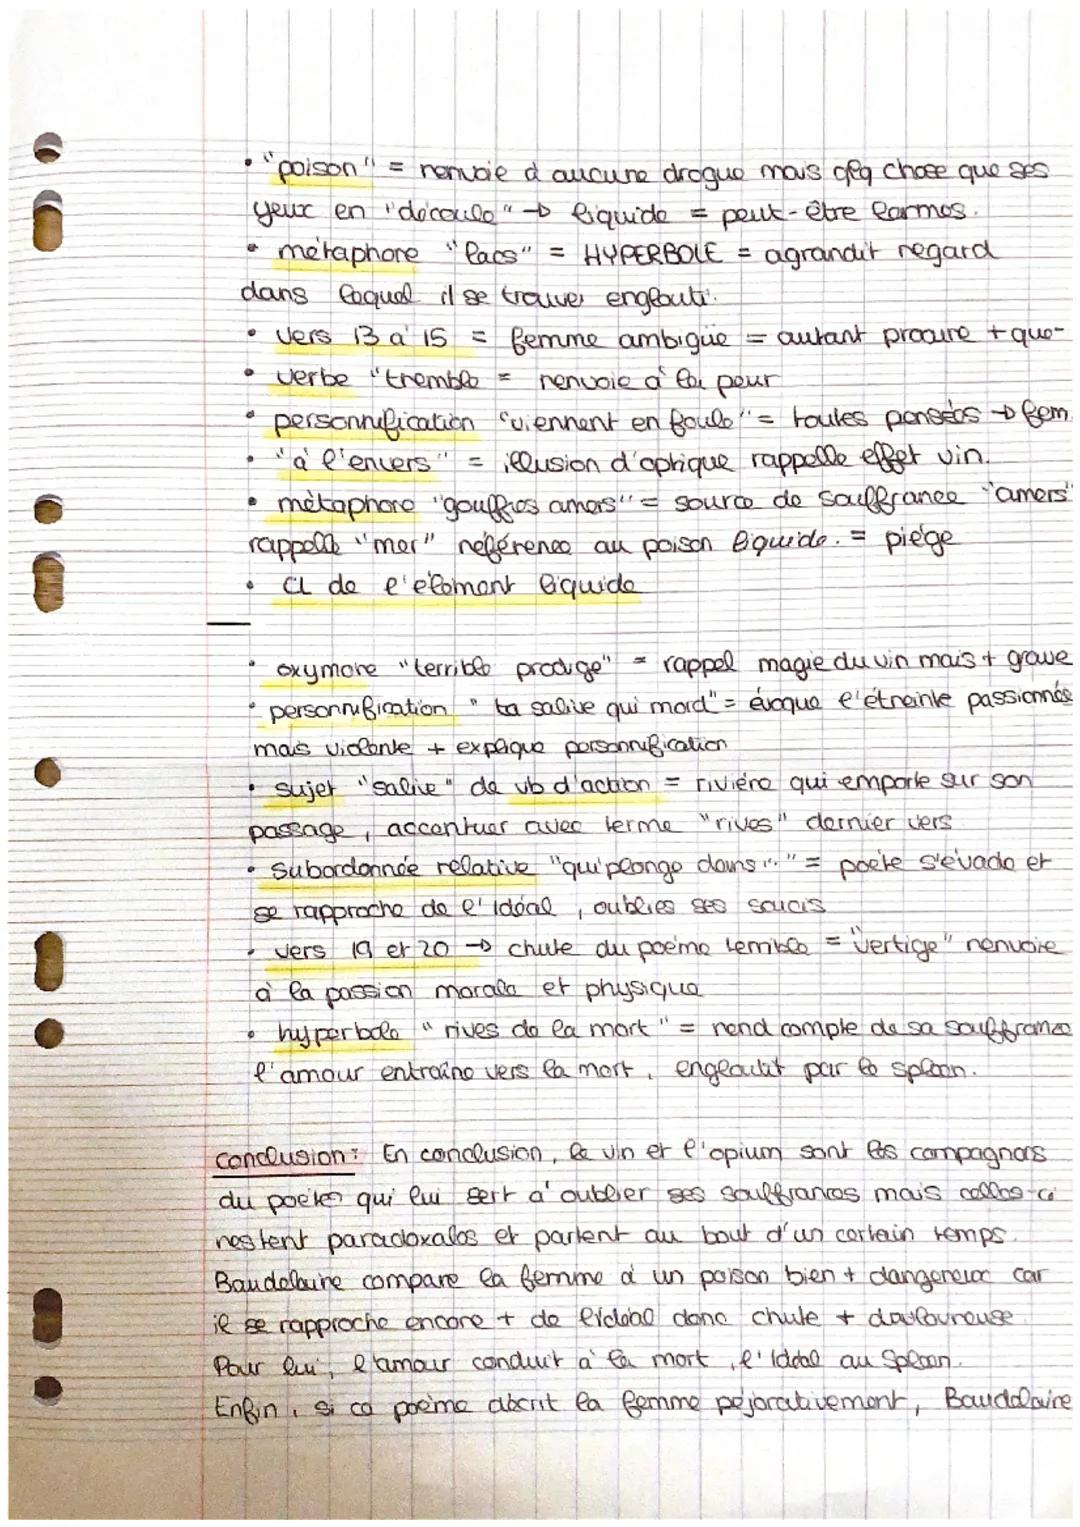 • "poison" = renvoie d aucune drogue mais qlq chose que ses
yeux en "découle" → liquide = peut-être larmes.
• métaphore "lacs" = HYPERBOLE = agrandit regard
dans lequel il se trouve englouti.
• vers 13 à 15 = femme ambigüe = autant procure + que-
• verbe "tremble = renvoie à la peur
• personnification "viennent en foule" = toutes pensées → fem
• "à l'envers" = illusion d'optique rappelle effet vin.
• métaphore "gouffres amers" = source de souffrance "amers"
rappelle "mer" référence au poison liquide. = piège
• CL de l'élément liquide
• oxymore "terrible prodige" = rappel magie du vin mais + grave
• personnification " ta salive qui mord" = évoque l'étreinte passionnée
mais violente + explique personnification
• sujet "salive" de vb d'action = rivière qui emporte sur son
passage, accentuer avec terme "rives" dernier vers
• subordonnée relative "qui plonge dans..." = poète s'évade et
se rapproche de l'idéal, oublies ses soucis
• vers 19 et 20 → chute du poème terrible = "vertige" renvoie
à la passion morale et physique
• hyperbole " rives de la mort" = rend compte de sa souffrance
l'amour entraîne vers la mort, engloutit par le spleen.
conclusion : En conclusion, le vin et l'opium sont les compagnons
du poètes qui lui sert à oublier ses souffrances mais celles-ci
restent paradoxales et partent au bout d'un certain temps.
Baudelaire compare la femme à un poison bien + dangereux car
il se rapproche encore + de l'idéal donc chute + douloureuse.
Pour lui, l'amour conduit à la mort, l'idéal au Spleen.
Enfin, si ce poème décrit la femme péjorativement, Baudelaire